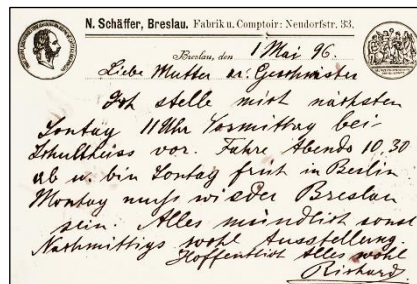 N. Schäffer, Breslau. Fabrik u. Comptoir: Neudorfstr. 33.
Breslau, den 1 Mai 96.
Liebe Mutter u. Geschwister
Ich stelle mich nächsten
Sontag 11 Uhr Vormittag bei
Schultheiss vor. Fahre Abends 10,30
ab u. bin Sontag früh in Berlin
Montag muss wieder Breslau
sein. Alles mündlich sonst
Nachmittigs wohl Ausstellung.
Hoffentlich Alles wohl
Richard.